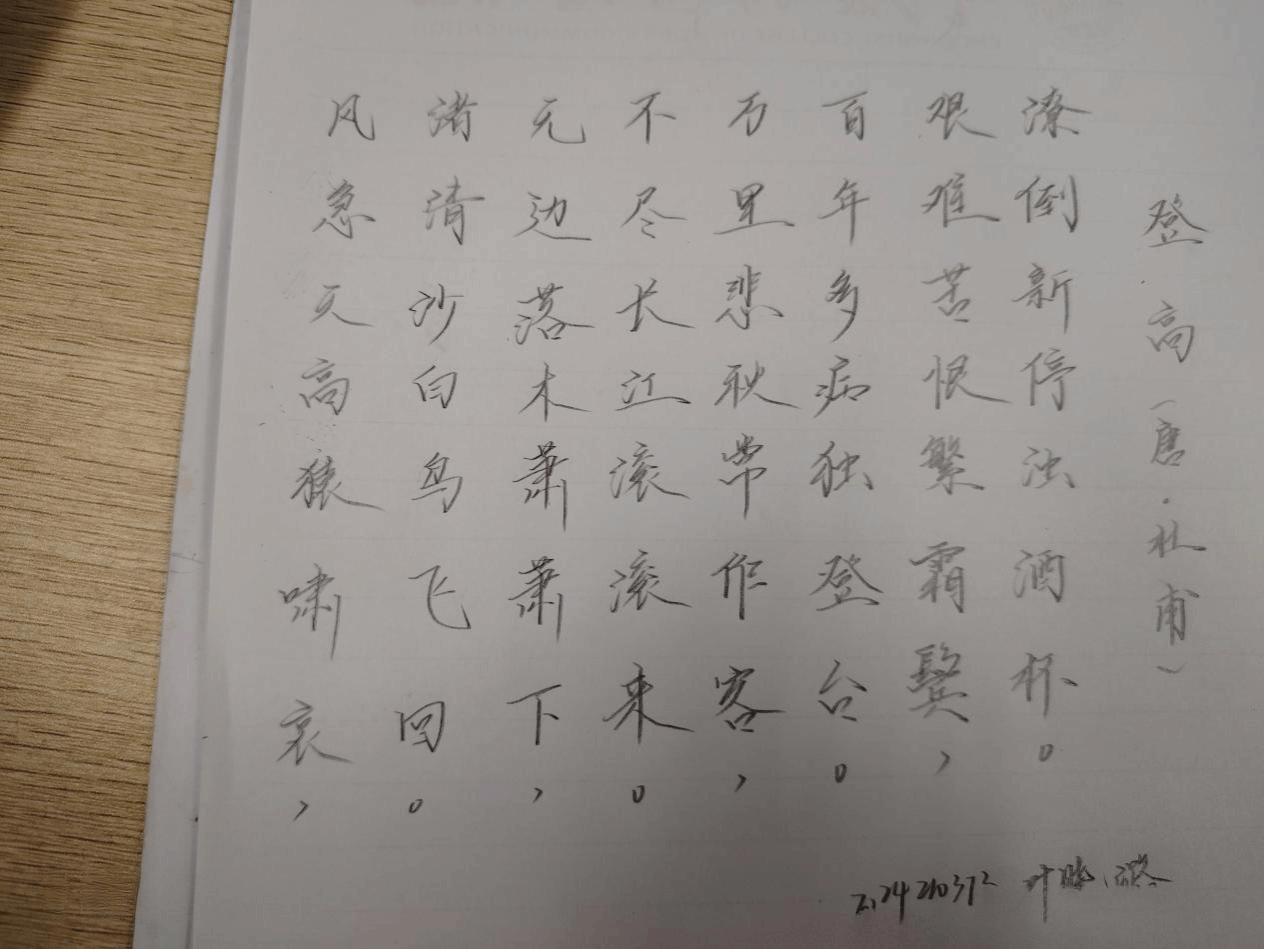 登高（唐·杜甫）
风急天高猿啸哀，
渚清沙白鸟飞回。
无边落木萧萧下，
不尽长江滚滚来。
万里悲秋常作客，
百年多病独登台。
艰难苦恨繁霜鬓，
潦倒新停浊酒杯。